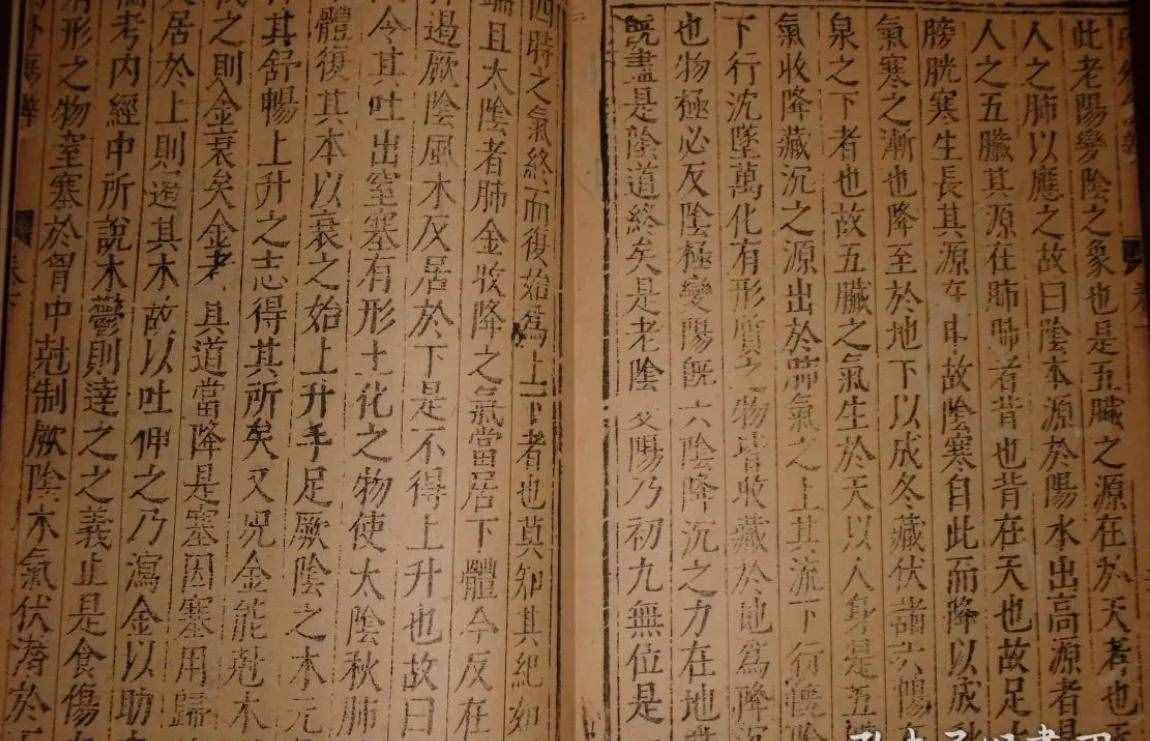 此老陽變陰之象也是五臟之源在於天者也
人之肺以應之故曰陰本源於陽水出高源者是
人之五臟其源在肺肺者背也背在天也故足
膀胱寒生長其源在申故陰寒自此而降以成秋
氣寒之漸也降至於地下以成冬藏伏諸六陽在
泉之下者也故五臟之氣生於天以人身是五
氣收降藏沉之源出於肺氣之上其流下行
下行沉墜萬化有形質之物皆收藏於地為降沉
也物極必反陰極變陽既六陰降沉之力在地
既盡是陰道終矣是老陰交陽乃初九無位是
四時之氣終而復始為上下者也莫知其紀如
端且太陰者肺金收降之氣當居下體今反在
遏厥陰風木反居於下是不得上升也故曰
今且吐出窒塞有形土化之物使太陰秋肺
體復其本以衰之始上升手足厥陰之木元
其舒暢上升之志得其所矣又況金能尅木
之則金衰矣金者其道當降是塞因塞用歸
居於上則遏其木故以吐伸之乃瀉金以助
考內經中所說木鬱則達之之義止是食傷
形之物窒塞於胃中尅制厥陰木氣伏潛於